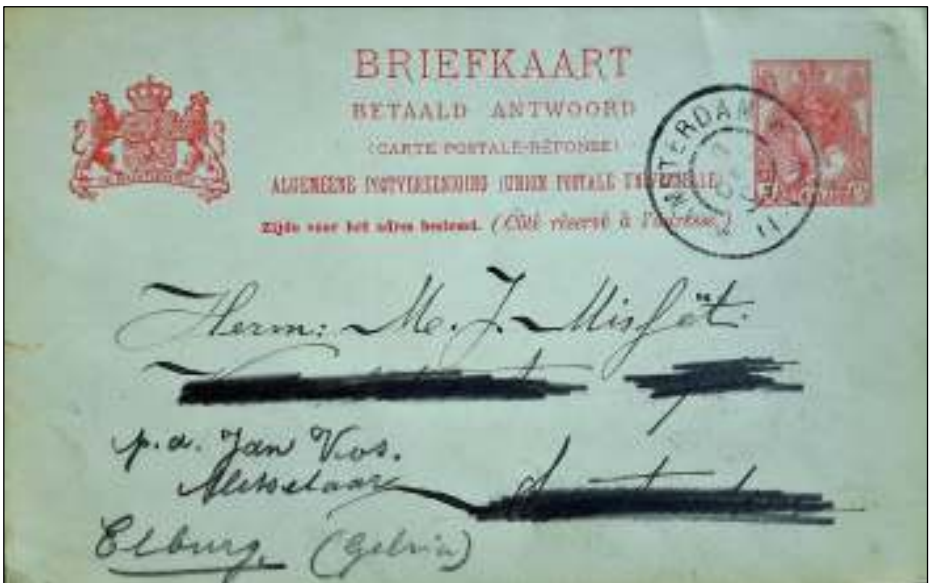 BRIEFKAART
BETAALD ANTWOORD
(CARTE POSTALE-RÉPONSE)
ALGEMEENE POSTVEREENIGING (UNION POSTALE UNIVERSELLE)
Zijde voor het adres bestemd. (Côté réservé à l'adresse.)
AMSTERDAM
Herm: M. J.
p.a. Jan Vos.
Metselaar
Elburg